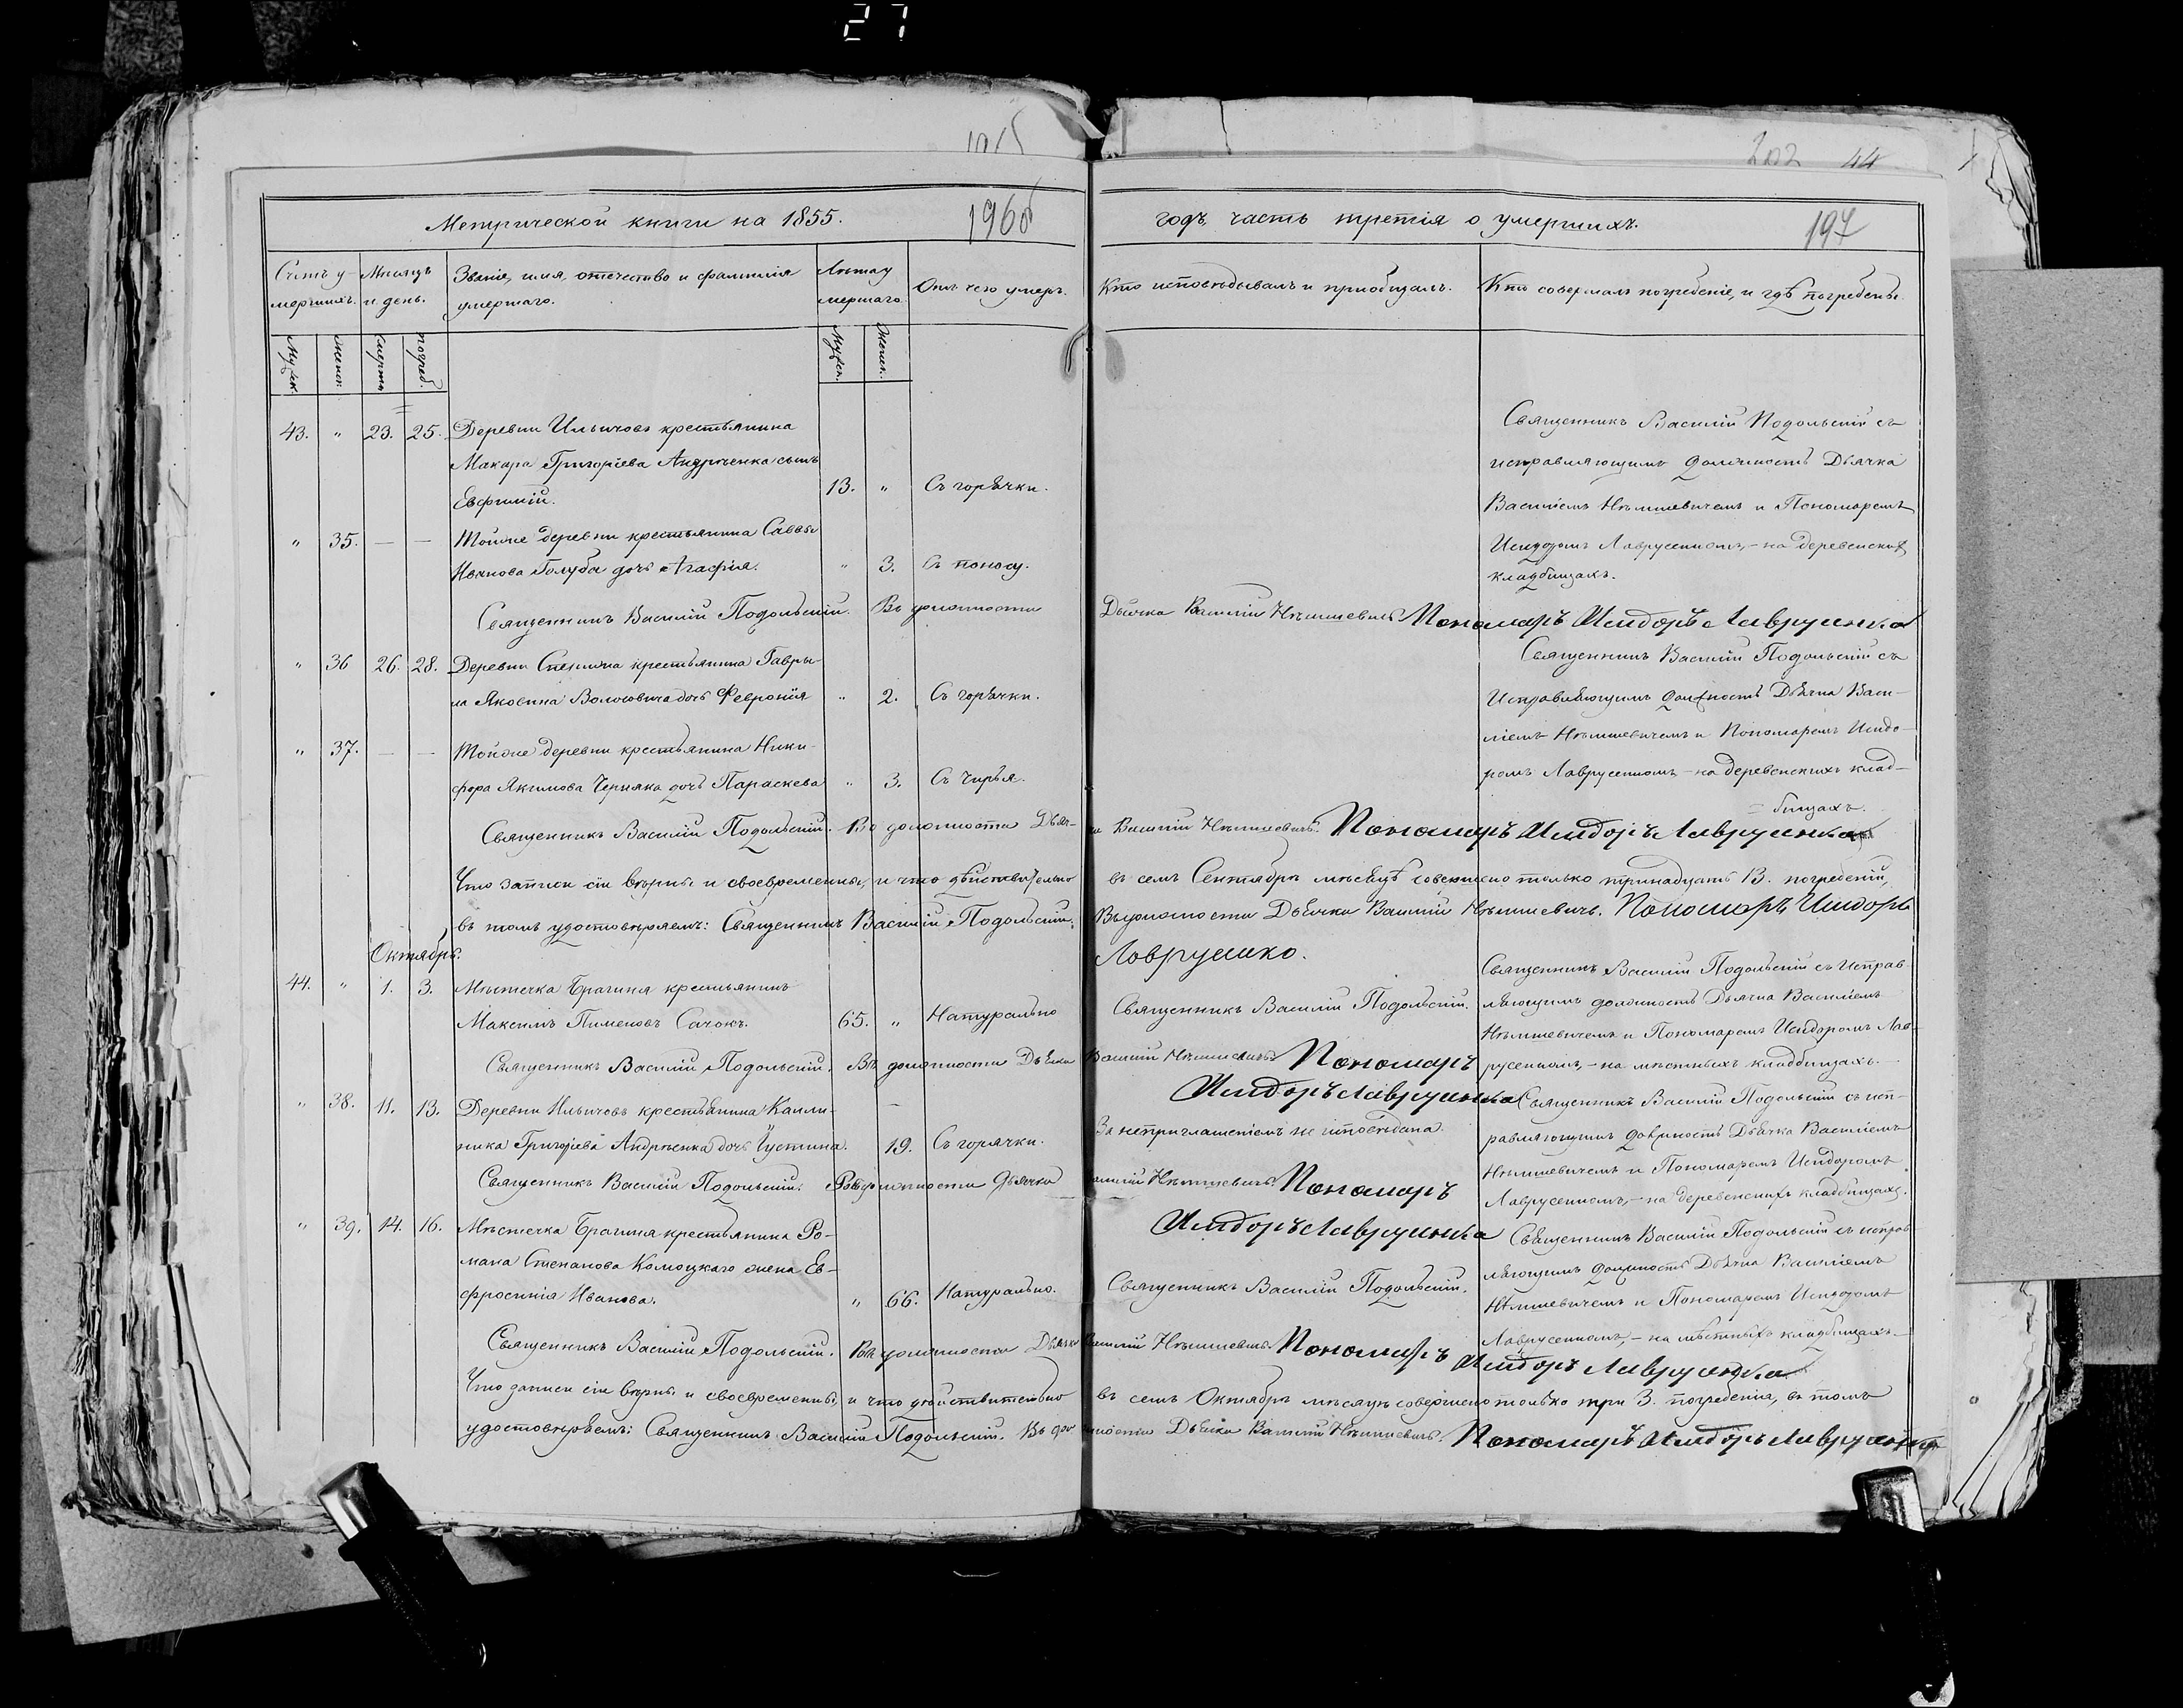 27
1915
202 44
Метрической книги на 1855.
196об
годъ, часть третія о умершихъ.
197
Счетъ у-
мершихъ.
Мѣсяцъ
и день.
Званіе, имя, отечество и фамилія
умершаго.
Лѣта у
мершаго.
Отъ чего умеръ.
Кто исповѣдывалъ и пріобщалъ.
Кто совершалъ погребеніе, и гдѣ погребены.
Мужск.
женск.
смерти
погреб.
Мужск.
Женск.
43. " 23. 25. Деревни Ильичовъ крестьянина
Макара Григоріева Андрѣенка сынъ
Евфимій. 13. " Съ горячки.
Священникъ Василій Подольскій съ
исправляющимъ должность Дьячка
Василіемъ Нѣмшевичемъ и Пономаремъ
Исидоромъ Лаврусенкомъ, - на деревенскихъ
кладбищахъ.
" 35. — — Тойже деревни крестьянина Саввы
Иванова Голуба дочь Агафія. " 3. Съ поносу.
Священникъ Василій Подольскій. Въ должности Дьячка Василій Нѣмшевичъ. Пономаръ Исидоръ Лаврусенка
" 36 26. 28. Деревни крестьянина Гаври-
ла Яковина Волосовича дочь Февронія " 2. Съ горячки.
Священникъ Василій Подольскій съ
Исправляющимъ должность Дьячка Васи-
ліемъ Нѣмшевичемъ и Пономаремъ Исидо-
ромъ Лаврусенкомъ - на деревенскихъ клад-
бищахъ.
" 37. — — Тойже деревни крестьянина Ники-
фора Якимова Черняка дочь Параскева " 3. Съ Чирья.
Священникъ Василій Подольскій. Въ должности Дьяч-ка Василій Нѣмшевичъ. Пономаръ Исидоръ Лаврусенка
Что записи сіи вѣрны и своевременны, и что дѣйствительно въ семъ Сентябрѣ мѣсяцѣ совершено только тринадцать 13. погребеній,
въ томъ удостовѣряемъ: Священникъ Василій Подольскій. Въ должности Дьячка Василій Нѣмшевичъ. Пономаръ Исидоръ
Лаврусенко.
Октябрь.
44. " 1. 3. Мѣстечка Брагиня крестьянинъ
Максимъ Пименовъ Сачокъ. 65. " Натурально
Священникъ Василій Подольскій.
Священникъ Василій Подольскій съ Исправ-
ляющимъ должность Дьячка Василіемъ
Нѣмшевичемъ и Пономаремъ Исидоромъ Лав-
русенкомъ, - на мѣстныхъ кладбищахъ.
Священникъ Василій Подольскій. Въ должности Дьячка Василій Нѣмшевичъ. Пономаръ
Исидоръ Лаврусенка
" 38. 11. 13. Деревни Ильичовъ крестьянина Кали-
ника Григоріева Андрѣенка дочь Іустина. " 19. Съ горячки.
За неприглашеніемъ не исповѣдана.
Священникъ Василій Подольскій съ исп-
равляющимъ должность Дьячка Василіемъ
Нѣмшевичемъ и Пономаремъ Исидоромъ
Лаврусенкомъ, - на деревенскихъ кладбищахъ.
Священникъ Василій Подольскій. Въ должности Дьячка Василій Нѣмшевичъ. Пономаръ
Исидоръ Лаврусенка
" 39. 14. 16. Мѣстечка Брагиня крестьянина Ро-
мана Степанова Комоцкаго жена Ев-
фросинія Иванова. " 66. Натурально.
Священникъ Василій Подольскій.
Священникъ Василій Подольскій съ исправ-
ляющимъ должность Дьячка Василіемъ
Нѣмшевичемъ и Пономаремъ Исидоромъ
Лаврусенкомъ, - на мѣстныхъ кладбищахъ.
Священникъ Василій Подольскій. Въ должности Дьячка Василій Нѣмшевичъ. Пономаръ Исидоръ Лаврусенка
Что записи сіи вѣрны и своевременны, и что дѣйствительно въ семъ Октябрѣ мѣсяцѣ совершено только три 3. погребенія, въ томъ
удостовѣряемъ: Священникъ Василій Подольскій. Въ должности Дьячка Василій Нѣмшевичъ. Пономаръ Исидоръ Лаврусенка